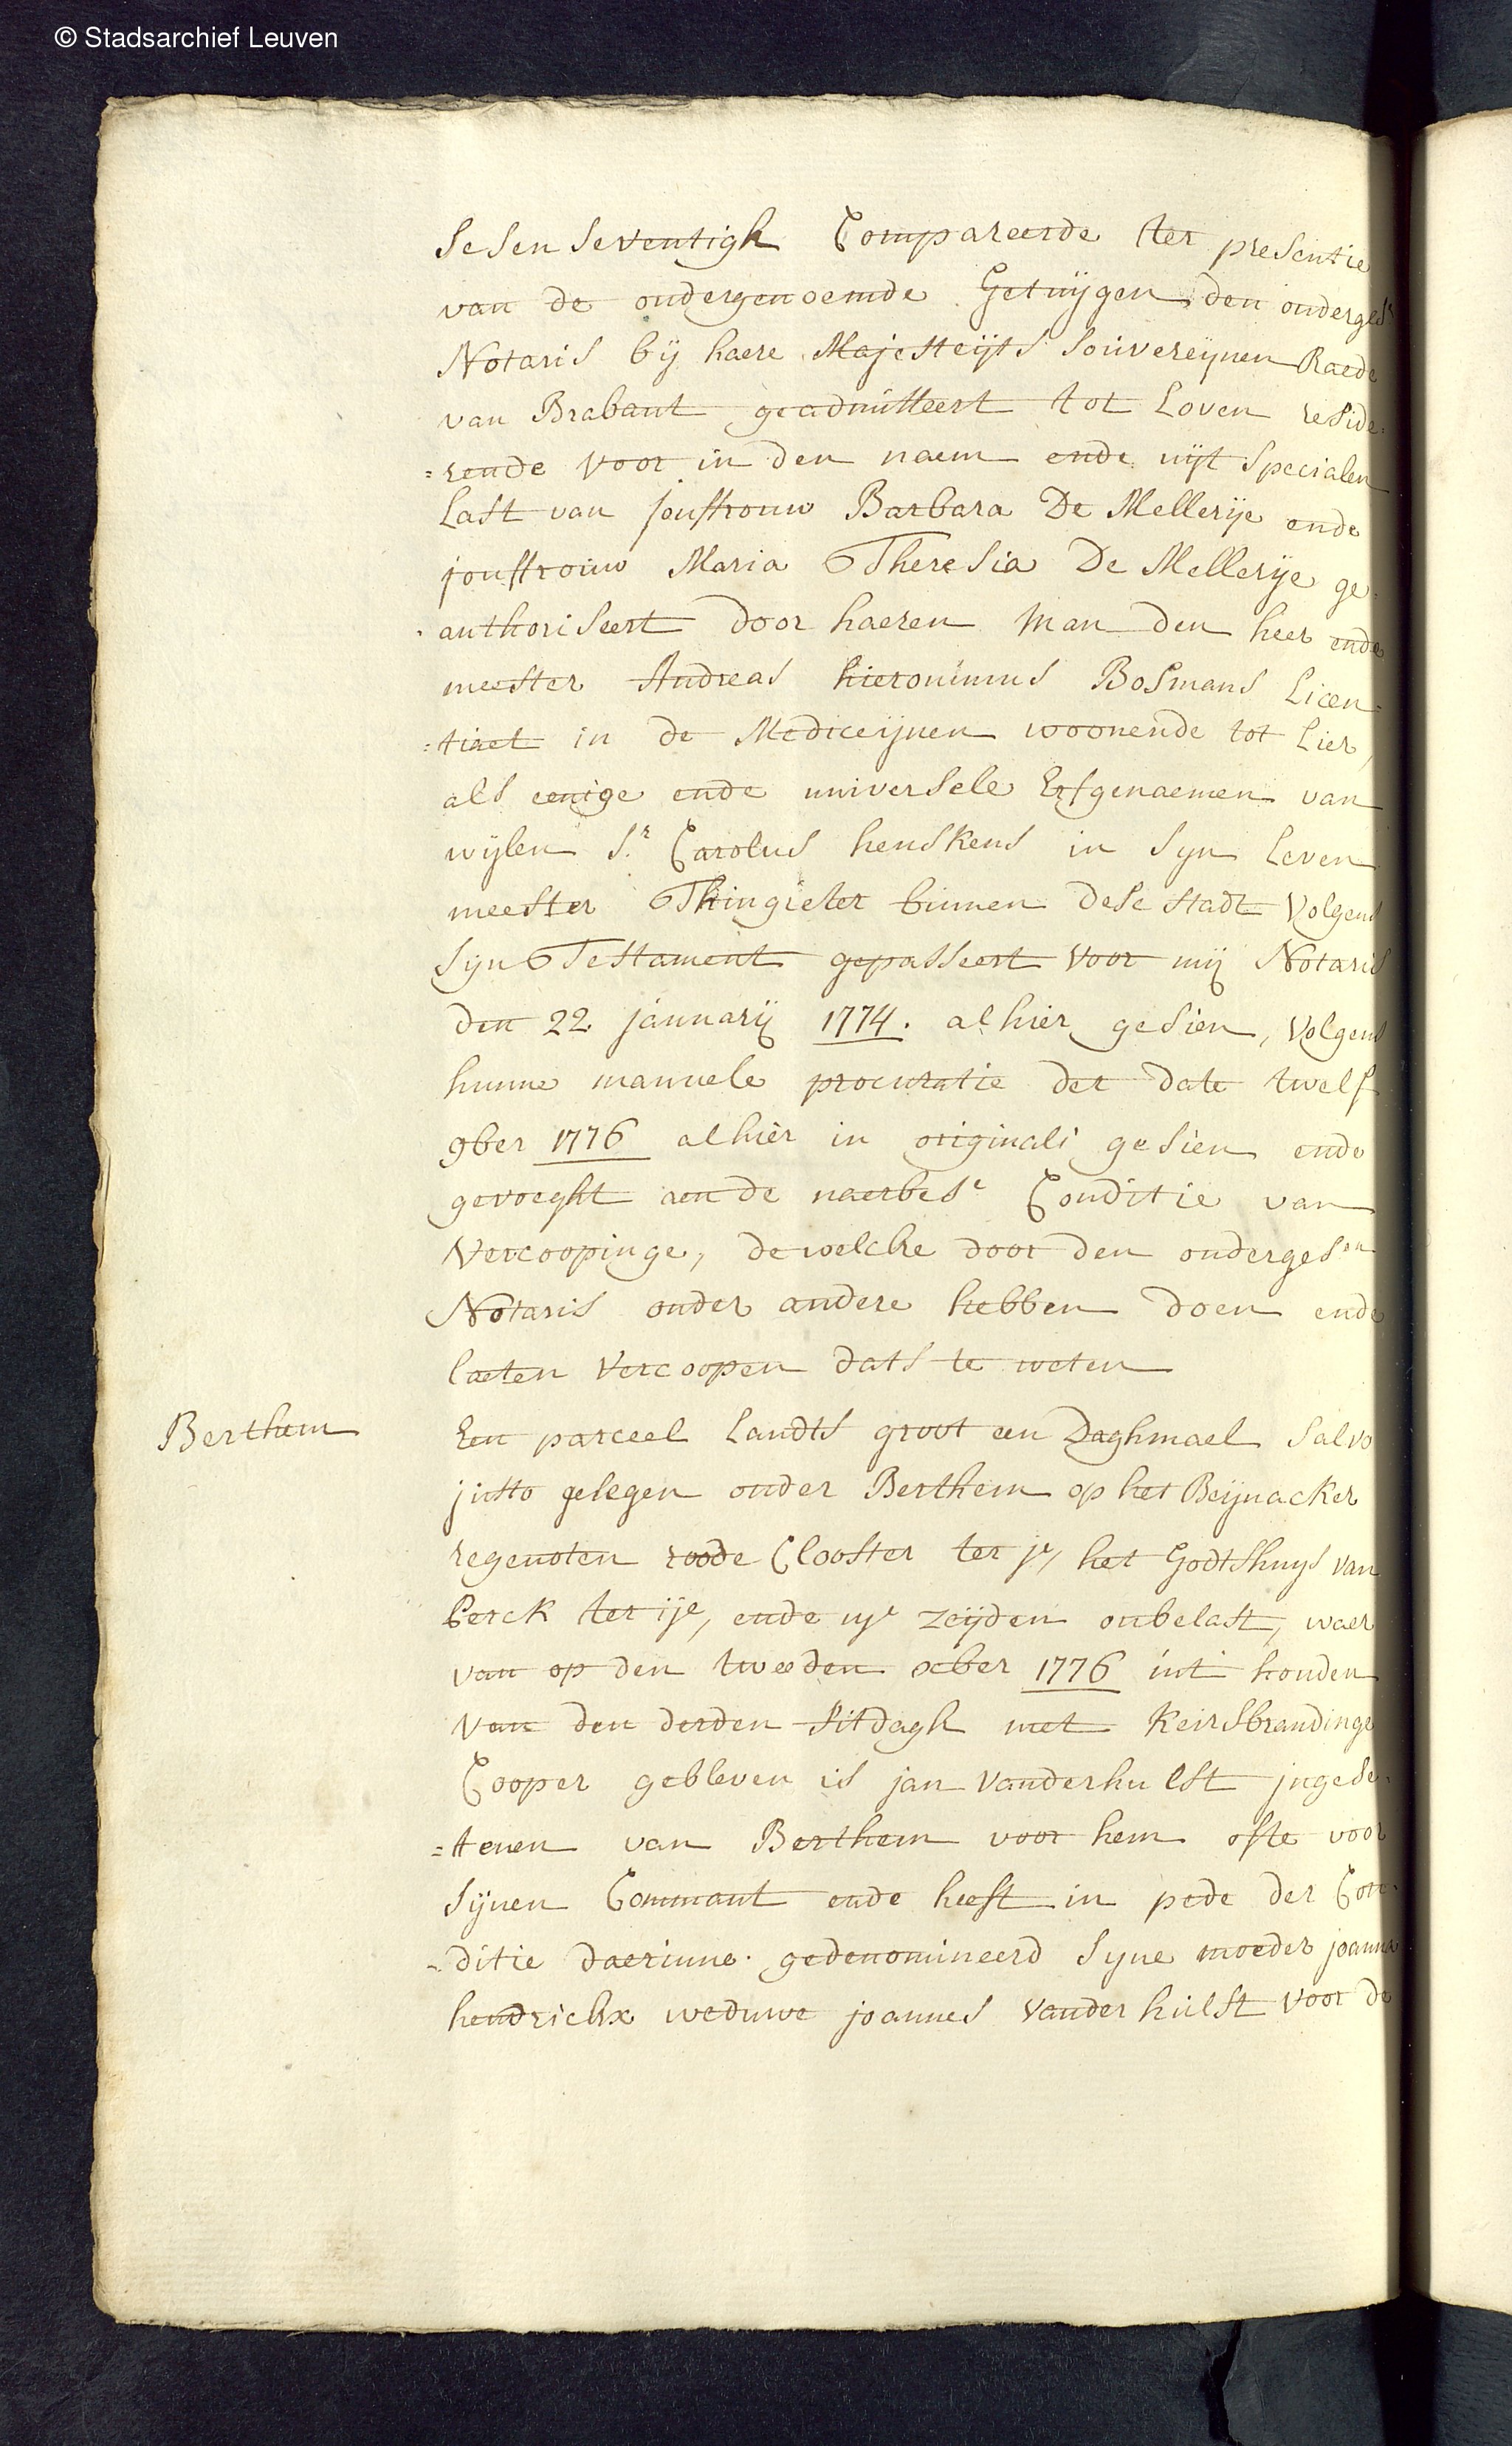 © Stadsarchief Leuven
sesenseventigh Compareerde ter presentie
van de ondergenoemde Getuijgen den onderges.
Notaris bij haere Majesteijts souvereijnen Raede
van Brabant geadmitteert tot Loven reside=
=rende voor in den naem ende uijt specialen
last van jouffrouw Barbara De Mellerije ende
jouffrouw Maria Theresia De Mellerije ge=
authoriseert door haeren man den heer ende
meester Andreas hieronimus Bosmans Licen=
=tiaet in de Mediceijnen woonende tot Lier,
als eenige ende universele Erfgenaemen van
wijlen Sr. Carolus henskens in syn leven
meester Thingieter binnen dese stadt volgens
syn Testament gepasseert voor mij Notaris
den 22 januarij 1774. alhier gesien, volgens
hunne manuele procuratie der date twelf
9ber 1776 alhier in originali gesien ende
gevoeght aen de naerbese Conditie van
Vercoopinge, dewelcke door den ondergesen
Notaris onder andere hebben doen ende
laeten Vercoopen dats te weten
Berthem
Een parceel Landts groot een Daghmael salvo
justo gelegen onder Berthem op het Beijnacker
regenoten roode Clooster ter je, het Godtshuys van
Perck ter ije, ende iije zeijden onbelast, waer
van op den tweeden xber 1776 int houden
van den derden sitdagh met Keirsbrandinge
Cooper gebleven is jan vanderhulst jngese=
=tenen van Berthem voor hem ofte voor
sijnen Commant ende heeft in pede der Con=
=ditie daerinne gedenomineerd syne moeder joanna
hendrickx weduwe joannes vanderhulst voor de